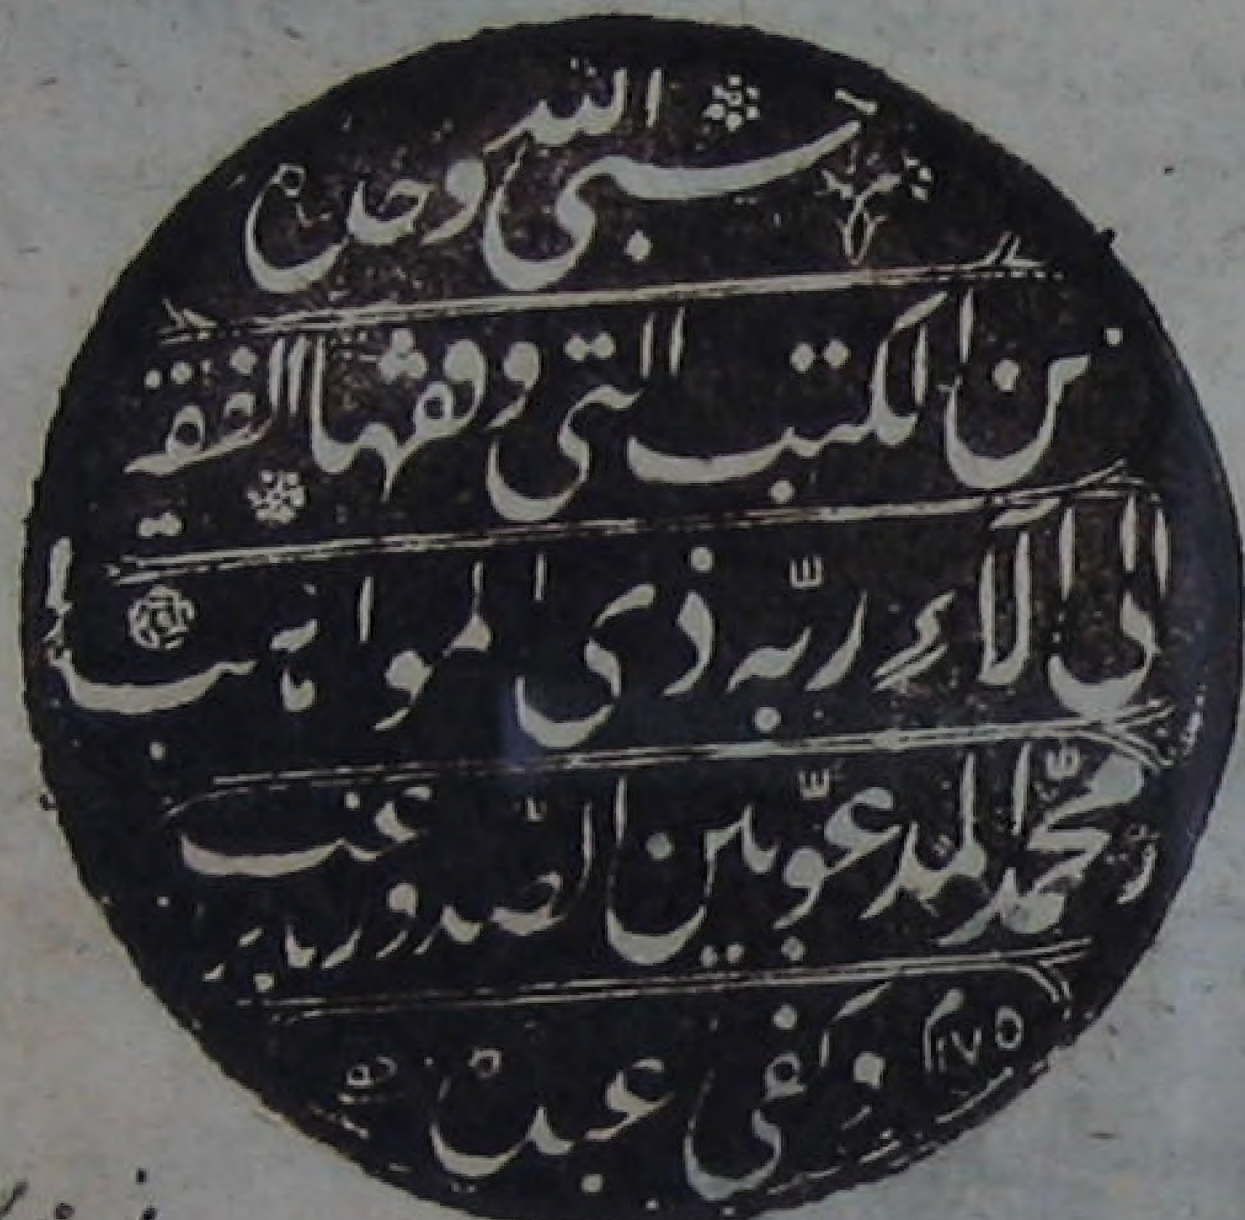 حسبي الله وحده
من الكتب التي وقفها الفقير
الى آلاء ربّه ذى المواهب
محمّد المدعوّ بين الصّدور بالراغب
وكفى عبده ١١٧٥